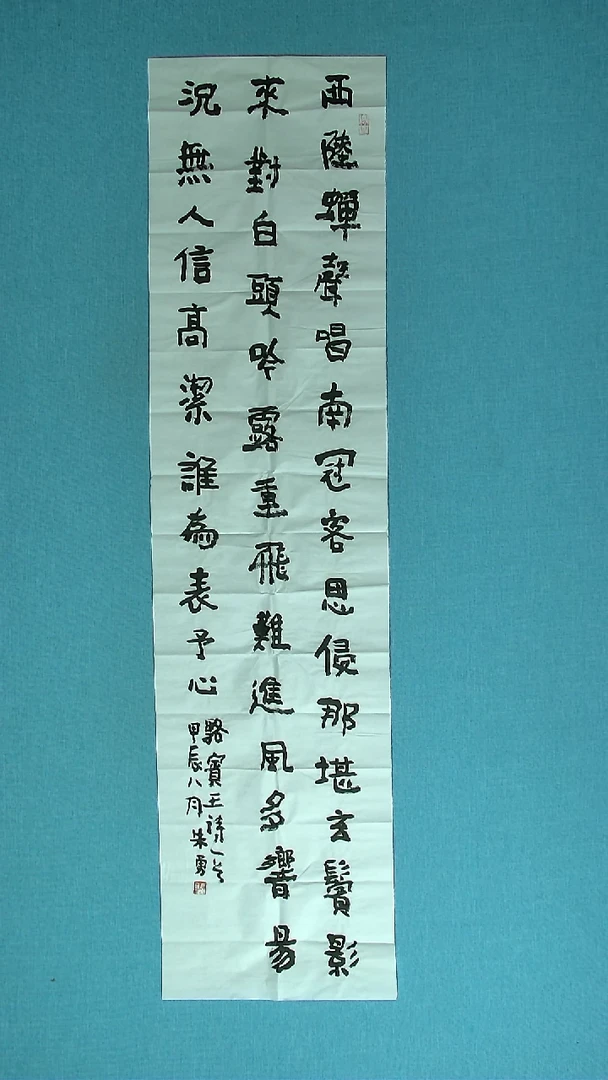 西陸蟬聲唱南冠客思侵那堪玄鬢影
來對白頭吟露重飛難進風多響易
況無人信高潔誰為表予心
駱賓王詩一首
甲辰八月朱勇